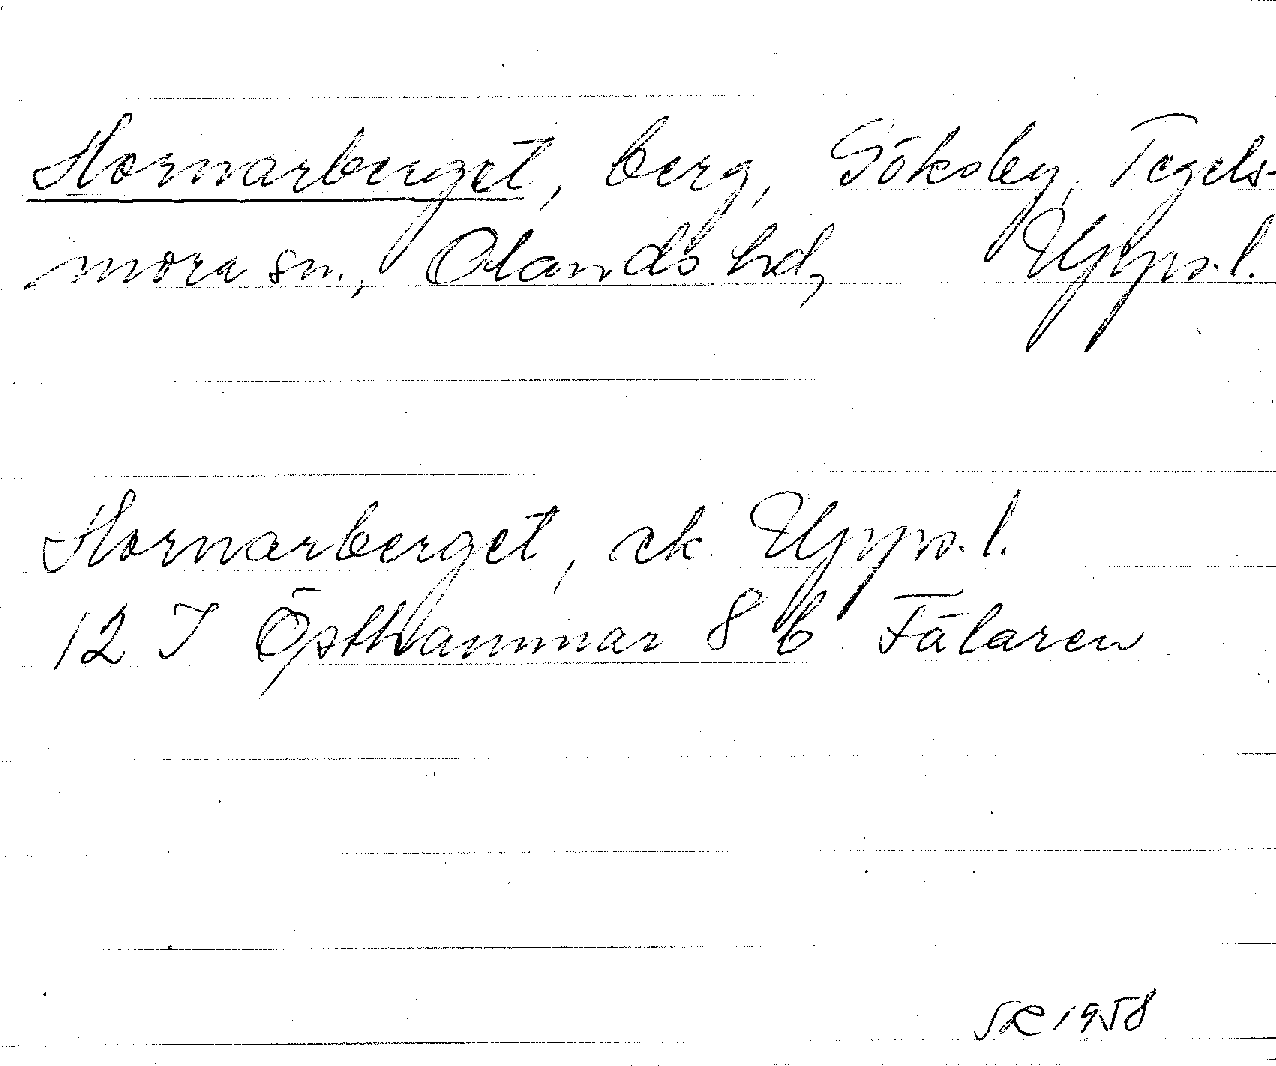 Hornarberget, berg, Göksby, Tegels-
mora sn., Olands hd, Upps. l.
Hornarberget, ek Upps. l.
12 I Östhammar 8 b Fälaren
SR 1958